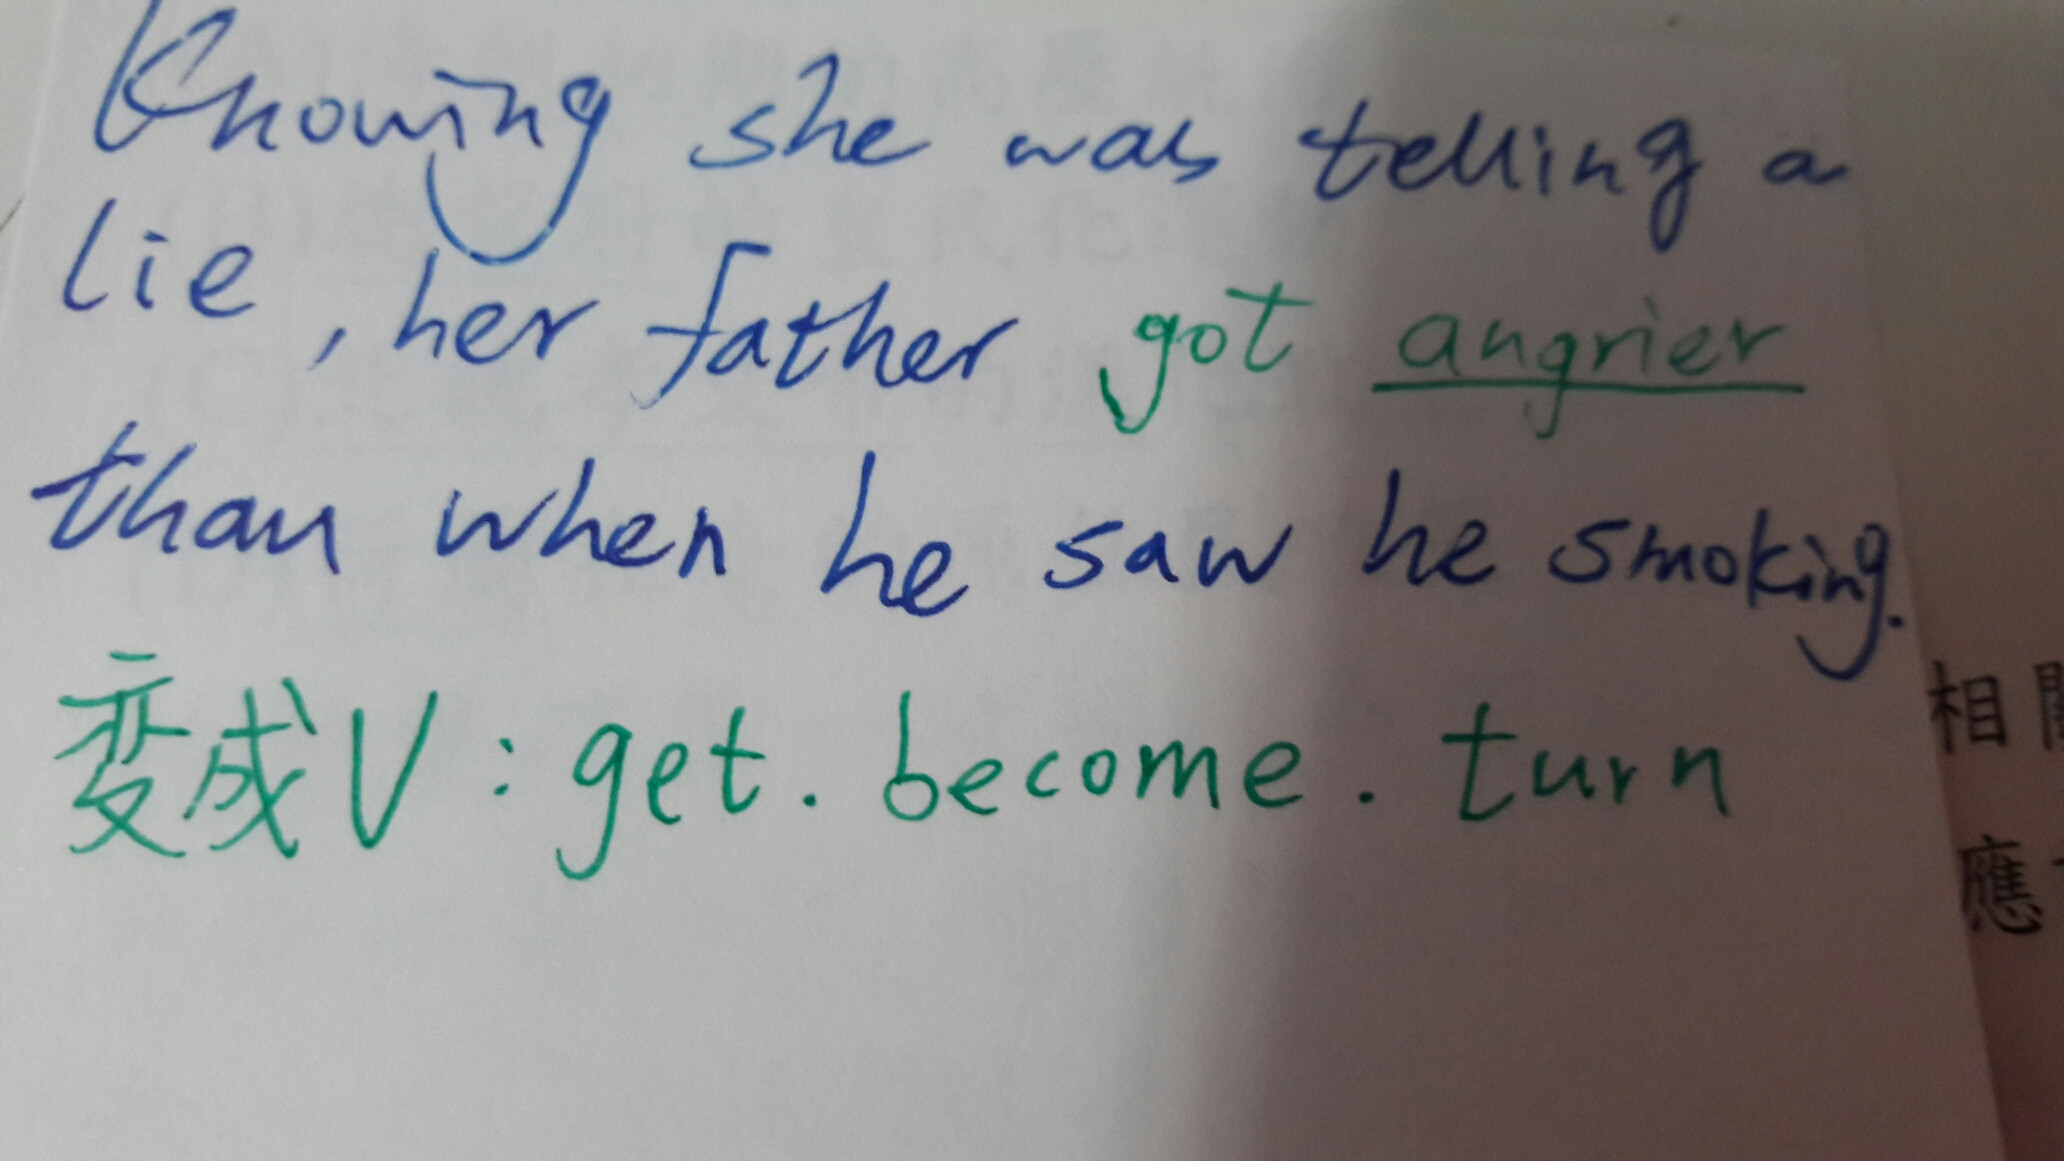 Knowing she was telling a
lie, her father got angrier
than when he saw he smoking.
变成V: get. become. turn
相
應